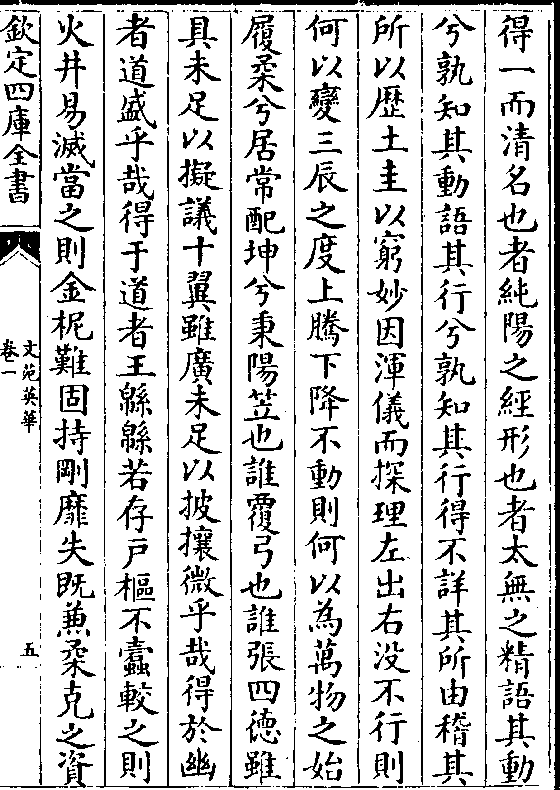 得一而清名也者純陽之經形也者太無之精語其動
兮孰知其動語其行兮孰知其行得不詳其所由稽其
所以歴土圭以窮妙因渾儀而探理左出右没不行則
何以變三辰之度上騰下降不動則何以為萬物之始
履柔兮居常配坤兮秉陽笠也誰覆弓也誰張四德雖
具未足以擬議十翼雖廣未足以披攘微乎哉得於幽
者道盛乎哉得于道者王緜緜若存戸樞不蠹較之則
火井易滅當之則金柅難固持剛靡失既兼柔克之資
欽定四庫全書
文苑英華
卷一
五